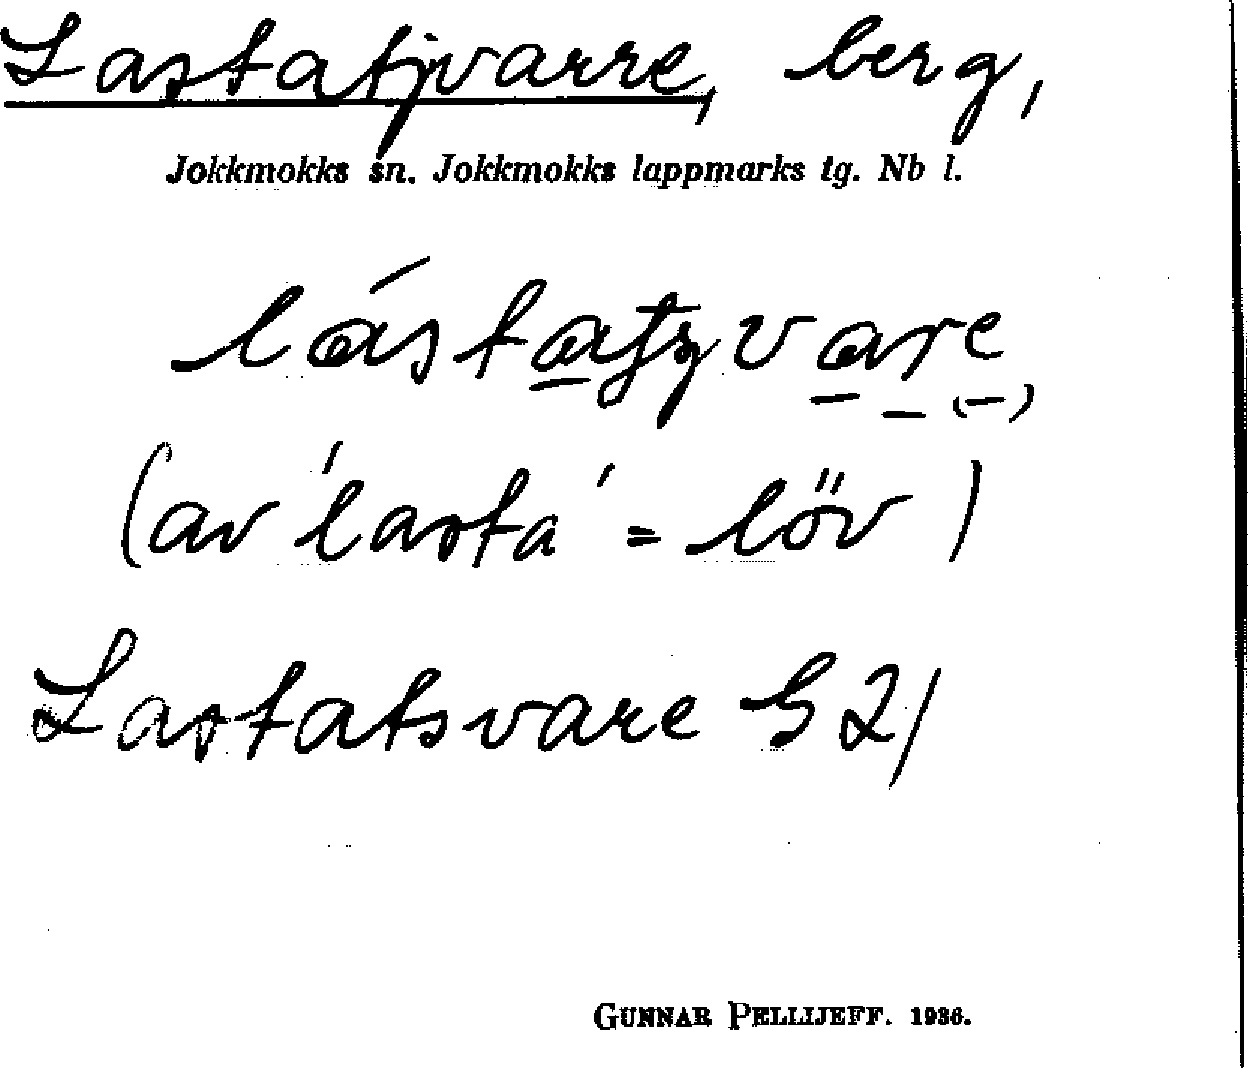 Lastatjvarre, berg,
Jokkmokks sn. Jokkmokks lappmarks tg. Nb l.
(av 'lasta' = löv)
Lastatsvare S 21
GUNNAR PELLIJEFF. 1936.